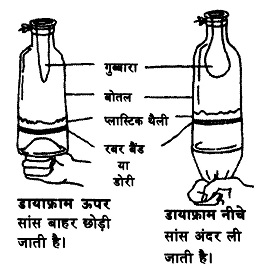 गुब्बारा
बोतल
प्लास्टिक थैली
रबर बैंड
या
डोरी
डायाफ्राम ऊपर
सांस बाहर छोड़ी
जाती है।
डायाफ्राम नीचे
सांस अंदर ली
जाती है।